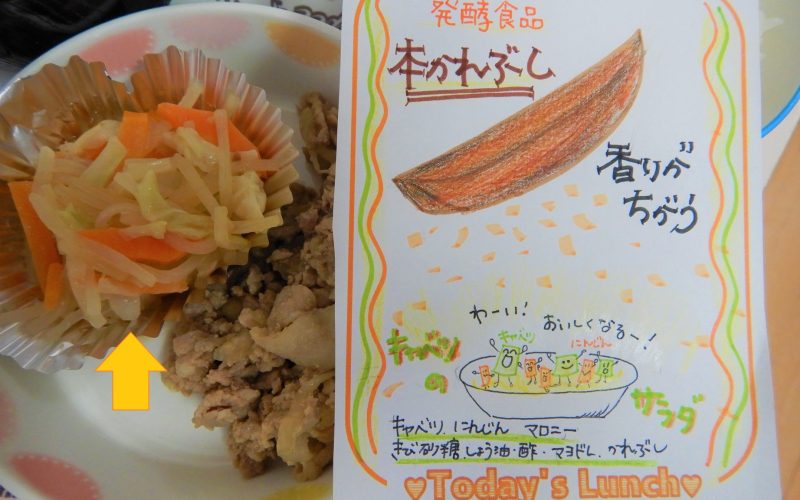 発酵食品
本かれぶし
香りが
ちがう
わーい!
おいしくなるー!
キャベツ
にんじん
キャベツ
の
サラダ
キャベツ にんじん マロニー
きび砂糖 しょう油・酢・マヨドレ かれぶし
♥Today's Lunch♥